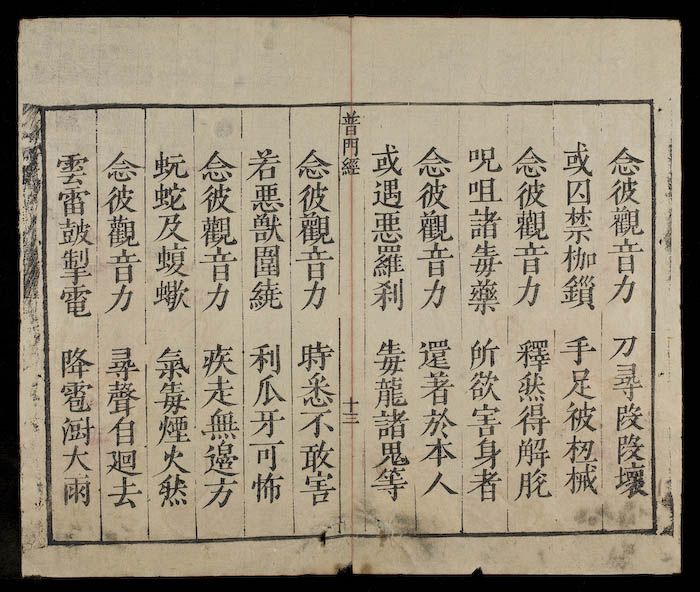 念彼觀音力 刀尋段段壞
或囚禁枷鎖 手足被杻械
念彼觀音力 釋然得解脫
呪咀諸毒藥 所欲害身者
念彼觀音力 還著於本人
或遇惡羅刹 毒龍諸鬼等
普門經 十三
念彼觀音力 時悉不敢害
若惡獸圍繞 利瓜牙可怖
念彼觀音力 疾走無邊方
蚖蛇及蝮蠍 氣毒煙火然
念彼觀音力 尋聲自迴去
雲雷鼓掣電 降雹澍大雨